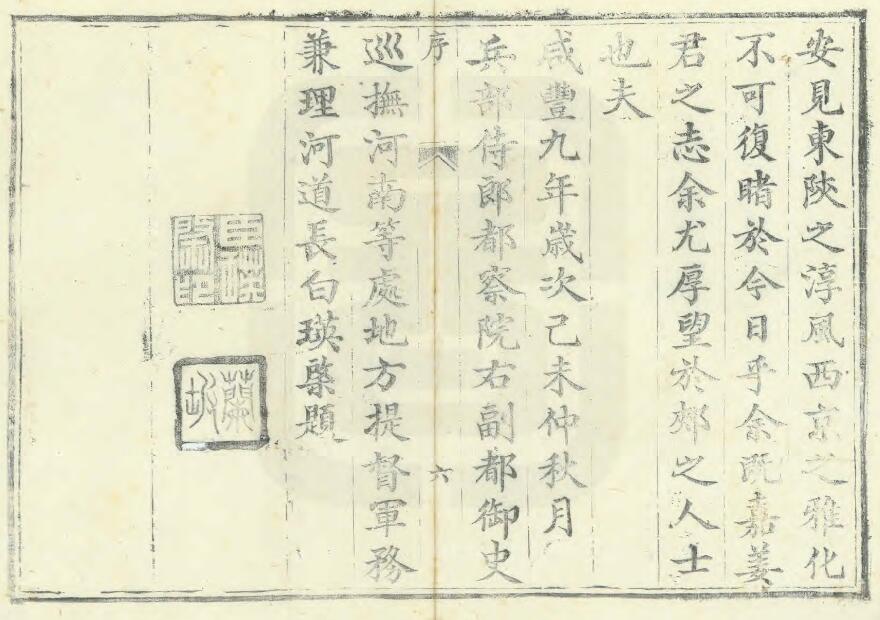 安見東陝之淳風西京之雅化
不可復睹於今日乎余既嘉姜
君之志余尤厚望於郟之人士
也夫
咸豐九年歲次己未仲秋月
兵部侍郎都察院右副都御史
序
六
巡撫河南等處地方提督軍務
兼理河道長白瑛棨題
蘭坡